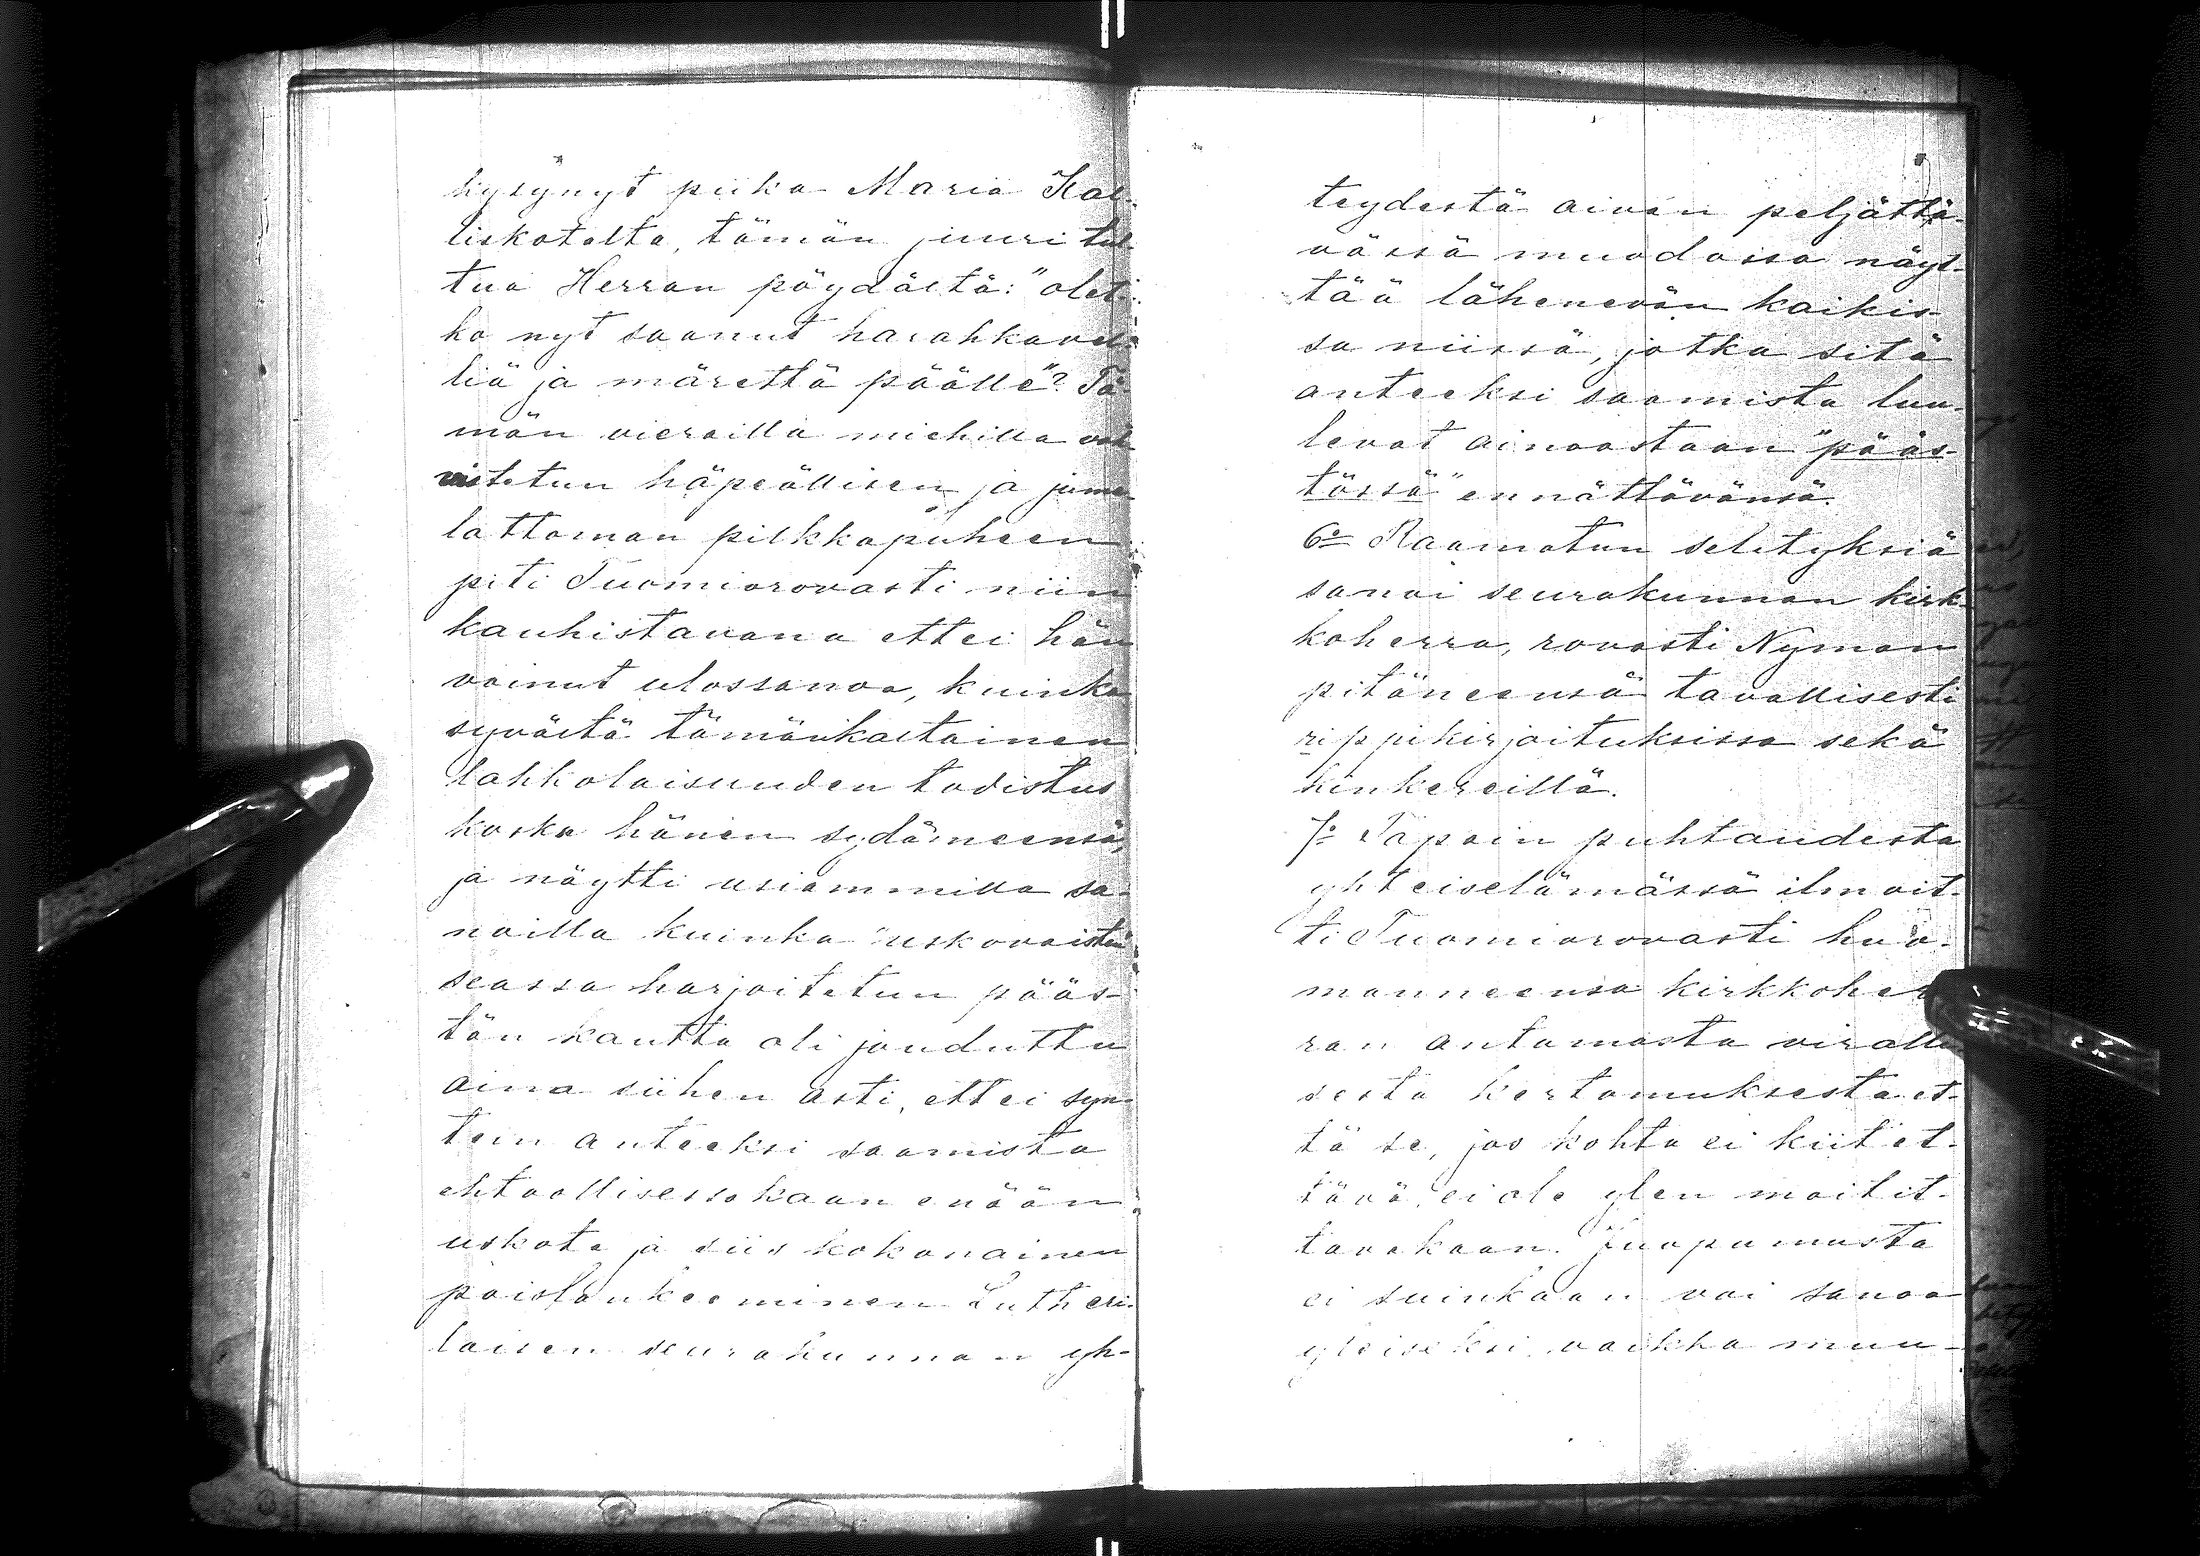 kysynyt piika Maria Kal-
liskotolta, tämän juuri tul-
tua Herran pöydältä: "oleti-
ko nyt saanut harahkavel-
liä ja märettä päälle"? Tä-
män vierailla miehillä
vistetun häpeällisen ja juma-
lattoman pilkkapuheen
piti Tuomiorovasti niin
kauhistavana ettei hän
voinut ulossanoa, kuinka
syvästä tämänkaltainen
lahkolaisuuden todistus
koska hänen sydämeensä,
ja näytti useammilla sa-
noilla kuinka "uskovaisten"
seassa harjoitetun pääs-
tön kautta oli jouduttu
aina siihen asti, ettei syn-
tein anteeksi saamista
ehtoollisessakaan enään
uskota ja siis kokonainen
poislankeeminen Lutheri-
laisen seurakunnan yh-
teydestä aivan peljättä-
vässä muodossa näyt-
tää lähenevän kaikis-
sa niissä, jotka sitä
anteeksi saamista luu-
levat ainoastaan "pääs-
tössä" ennättävänsä.
6:o Raamatun selityksiä
sanoi seurakunnan kirk-
koherra, rovasti Nyman
pitäneensä tavallisesti
rippikirjoituksissa sekä
kinkereillä.
7:o Tapain puhtaudesta
yhteiselämässä ilmoit-
ti Tuomiorovasti huo-
manneensa kirkkoher-
ran antamasta viralli-
sesta kertomuksesta et-
tä se, jos kohta ei kiitet-
tävä, ei ole ylen moitit-
tavakaan. Juopumusta
ei suinkaan voi sanoa
yleiseksi vaikka muu-